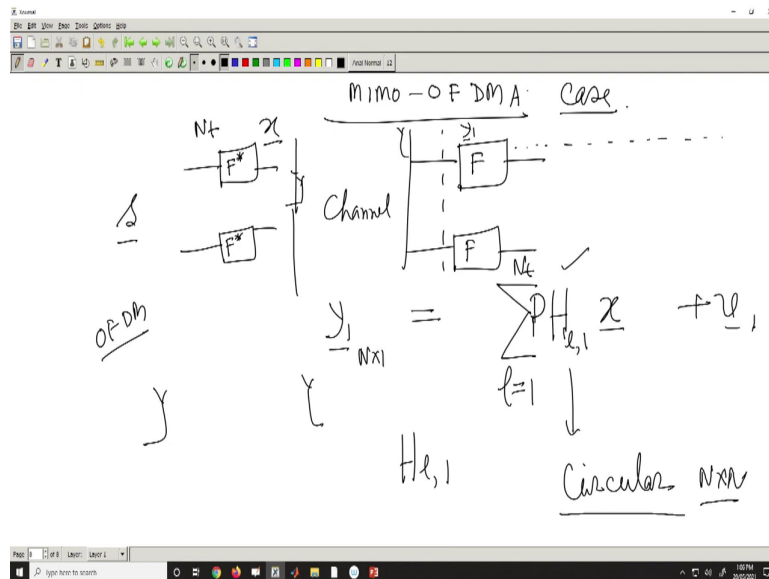 Xournal
File Edit View Page Tools Options Help
Arial Normal 12
MIMO-OFDMA Case.
Nt x y1
F* F
S Channel
F* F
Nt
OFDM y1 = ΣPHl,1 x + v1
N×1 l=1
Hl,1 Circular N×N
Page 8 of 8 Layer: Layer 1
Type here to search
1:06 PM